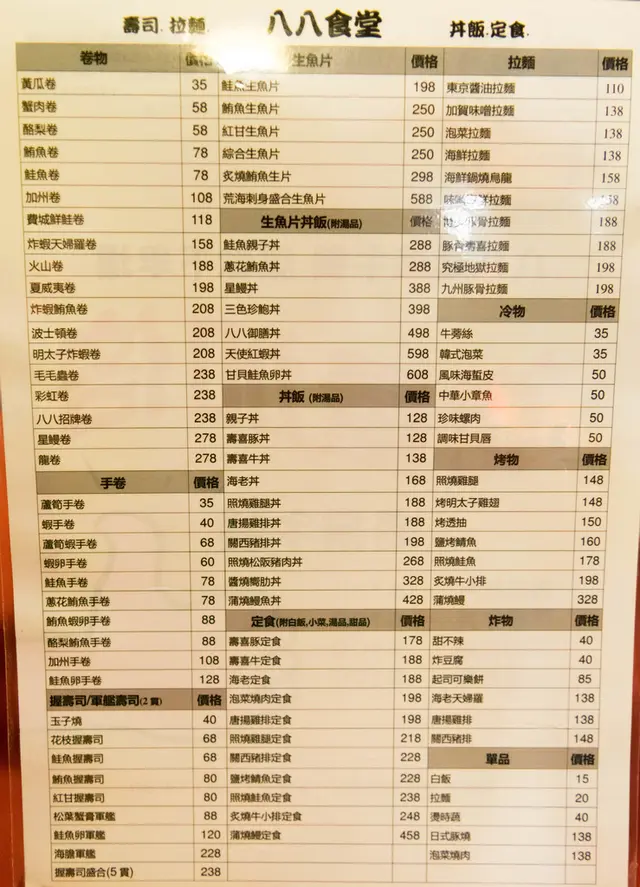 壽司.拉麵. 八八食堂 丼飯.定食.
卷物 價格
黃瓜卷 35
蟹肉卷 58
酪梨卷 58
鮪魚卷 78
鮭魚卷 78
加州卷 108
費城鮮鮭卷 118
炸蝦天婦羅卷 158
火山卷 188
夏威夷卷 198
炸蝦鮪魚卷 208
波士頓卷 208
明太子炸蝦卷 208
毛毛蟲卷 238
彩虹卷 238
八八招牌卷 238
星鰻卷 278
龍卷 278
手卷 價格
蘆筍手卷 35
蝦手卷 40
蘆筍蝦手卷 68
蝦卵手卷 60
鮭魚手卷 78
蔥花鮪魚手卷 78
鮪魚蝦卵手卷 88
酪梨鮪魚手卷 88
加州手卷 108
鮭魚卵手卷 128
握壽司/軍艦壽司(2貫) 價格
玉子燒 40
花枝握壽司 68
鮭魚握壽司 68
鮪魚握壽司 80
紅甘握壽司 80
松葉蟹膏軍艦 88
鮭魚卵軍艦 120
海膽軍艦 228
握壽司盛合(5貫) 238
生魚片 價格
鮭魚生魚片 198
鮪魚生魚片 250
紅甘生魚片 250
綜合生魚片 250
炙燒鮪魚生片 298
荒海刺身盛合生魚片 588
生魚片丼飯(附湯品) 價格
鮭魚親子丼 288
蔥花鮪魚丼 288
星鰻丼 388
三色珍鮑丼 398
八八御膳丼 498
天使紅蝦丼 598
甘貝鮭魚卵丼 608
丼飯 (附湯品) 價格
親子丼 128
壽喜豚丼 128
壽喜牛丼 138
海老丼 168
照燒雞腿丼 188
唐揚雞排丼 188
關西豬排丼 198
照燒松阪豬肉丼 268
醬燒嫩肋丼 328
蒲燒鰻魚丼 428
定食(附白飯,小菜,湯品,甜品) 價格
壽喜豚定食 178
壽喜牛定食 188
海老定食 188
泡菜燒肉定食 198
唐揚雞排定食 198
照燒雞腿定食 218
關西豬排定食 228
鹽烤鯖魚定食 228
照燒鮭魚定食 238
炙燒牛小排定食 248
蒲燒鰻定食 458
拉麵 價格
東京醬油拉麵 110
加賀味噌拉麵 138
泡菜拉麵 138
海鮮拉麵 138
海鮮鍋燒烏龍 158
鮮拉麵 158
豚骨拉麵 188
豚骨壽喜拉麵 188
究極地獄拉麵 198
九州豚骨拉麵 198
冷物 價格
牛蒡絲 35
韓式泡菜 35
風味海蜇皮 50
中華小章魚 50
珍味螺肉 50
調味甘貝唇 50
烤物 價格
照燒雞腿 148
烤明太子雞翅 148
烤透抽 150
鹽烤鯖魚 160
照燒鮭魚 178
炙燒牛小排 198
蒲燒鰻 328
炸物 價格
甜不辣 40
炸豆腐 40
起司可樂餅 85
海老天婦羅 138
唐揚雞排 138
關西豬排 148
單品 價格
白飯 15
拉麵 20
燙時蔬 40
日式豚燒 138
泡菜燒肉 138